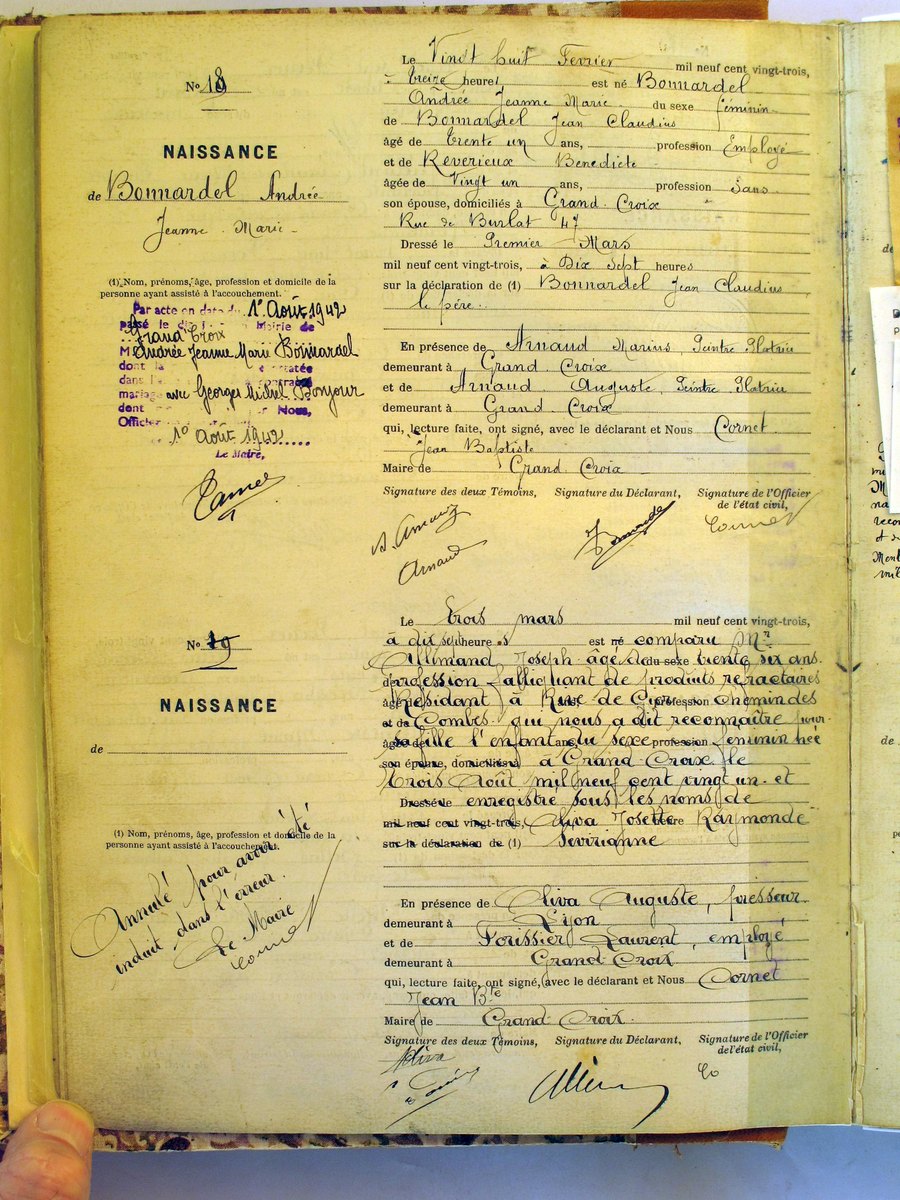 Nº 18
NAISSANCE
de Bonnardel Andrée
Jeanne Marie
(1) Nom, prénoms, âge, profession et domicile de la
personne ayant assisté à l'accouchement.
Par acte en date du 1er Août 1942
passé le en Mairie de
Grand Croix
M Andrée Jeanne Marie Bonnardel
dont la
dans l'
mariage avec Georges Michel Bonjour
dont Nous,
Officier
1er Août 1942
Le Maire,
Le Vingt huit Fevrier mil neuf cent vingt-trois,
à treize heures est né Bonnardel
Andrée Jeanne Marie du sexe féminin
de Bonnardel Jean Claudius
âgé de trente un ans, profession Employé
et de Reverieux Benedicte
âgée de Vingt un ans, profession Sans
son épouse, domiciliés à Grand Croix
Rue de Burlat 47
Dressé le Premier Mars
mil neuf cent vingt-trois, à Dix Sept heures
sur la déclaration de (1) Bonnardel Jean Claudius
le père
En présence de Arnaud Marius, Peintre Platrier
demeurant à Grand Croix
et de Arnaud Auguste Peintre Platrier
demeurant à Grand Croix
qui, lecture faite, ont signé, avec le déclarant et Nous Cornet
Jean Baptiste
Maire de Grand Croix
Signature des deux Témoins, Signature du Déclarant, Signature de l'Officier
de l'état civil,
Arnaud
Cornet
Nº 19
NAISSANCE
de
(1) Nom, prénoms, âge, profession et domicile de la
personne ayant assisté à l'accouchement.
Annulé pour avoir été
induit dans l'erreur.
Le Maire
Cornet
Le trois mars mil neuf cent vingt-trois,
à dix sept heures est né comparu Mr
Allimand Joseph âgé de du sexe trente six ans.
de profession fabliquant de produits refractaires
âgé Résidant à Rive de Gier profession Chemin des
et de Combes qui nous a dit reconnaître pour
âgée de sa fille l'enfant ans, du sexe profession feminin née
son épouse, domiciliés à à Grand Croix le
trois Août mil neuf cent vingt un et
Dressé le enregistré sous les noms de
mil neuf cent vingt-trois, Oliva Josette heure Raymonde
sur la déclaration de (1) Sevirianne
En présence de Oliva Auguste, presseur
demeurant à Lyon
et de Forissier Laurent, employé
demeurant à Grand Croix
qui, lecture faite, ont signé, avec le déclarant et Nous Cornet
Jean Bte
Maire de Grand Croix.
Signature des deux Témoins, Signature du Déclarant, Signature de l'Officier
de l'état civil,
Oliva
Co